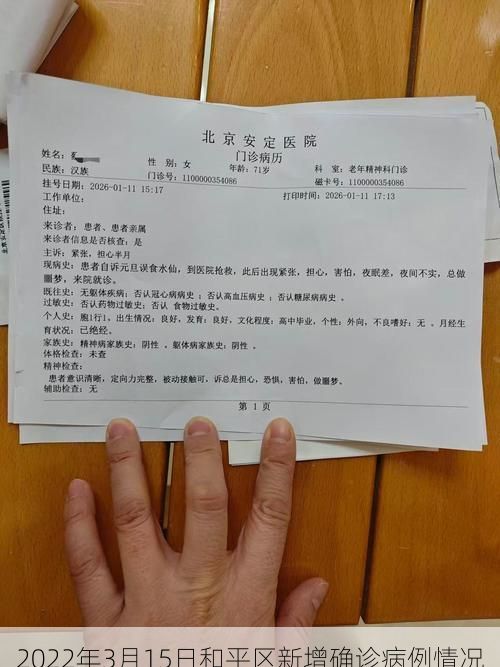 北京安定医院
门诊病历
姓名：
性 别：女
年龄：71岁
科 室：老年精神科门诊
民族：汉族
门诊号：1100000354086
磁卡号：1100000354086
挂号日期：2026-01-11 15:17
打印时间：2026-01-11 17:13
工作单位：
住址：
来诊者：患者、患者亲属
来诊者信息是否核查：是
主诉：紧张，担心半月
现病史：患者自诉元旦误食水仙，到医院抢救，此后出现紧张，担心，害怕，夜眠差，夜间不实，总做
噩梦，来院就诊。
既往史：无躯体疾病；否认冠心病病史 ；否认高血压病史 ；否认糖尿病病史 。
过敏史：否认药物过敏史；否认 食物过敏史。
个人史：胞1行1，出生情况：良好，发育：良好，文化程度：高中毕业，个性：外向，不良嗜好：无 。月经生
育状况：已绝经。
家族史：精神病家族史：阴性 。躯体病家族史：阴性 。
体格检查：未查
精神检查：
患者意识清晰，定向力完整，被动接触可，诉总是担心，恐惧，害怕，做噩梦。
辅助检查：无
第 1 页
2022年3月15日和平区新增确诊病例情况